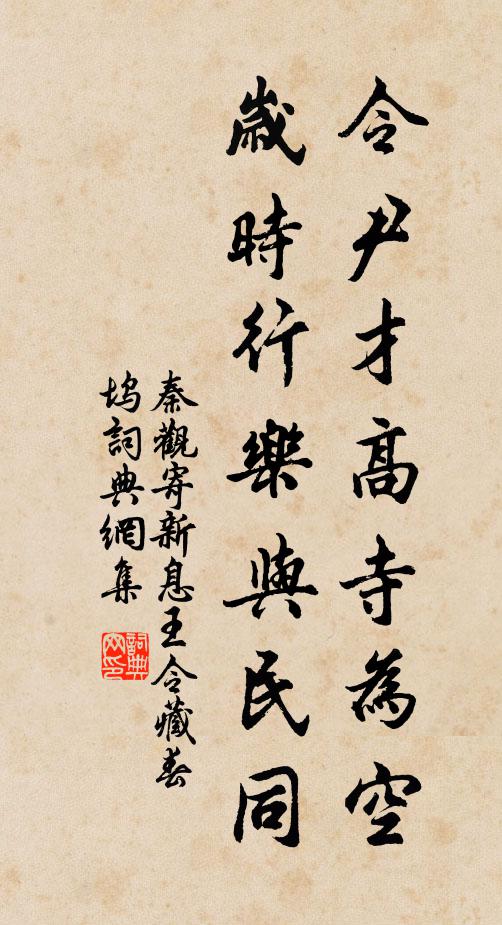 令尹才高寺為空
歲時行樂與民同
秦觀寄新息王令藏春
塢詞典網集
詞典網印